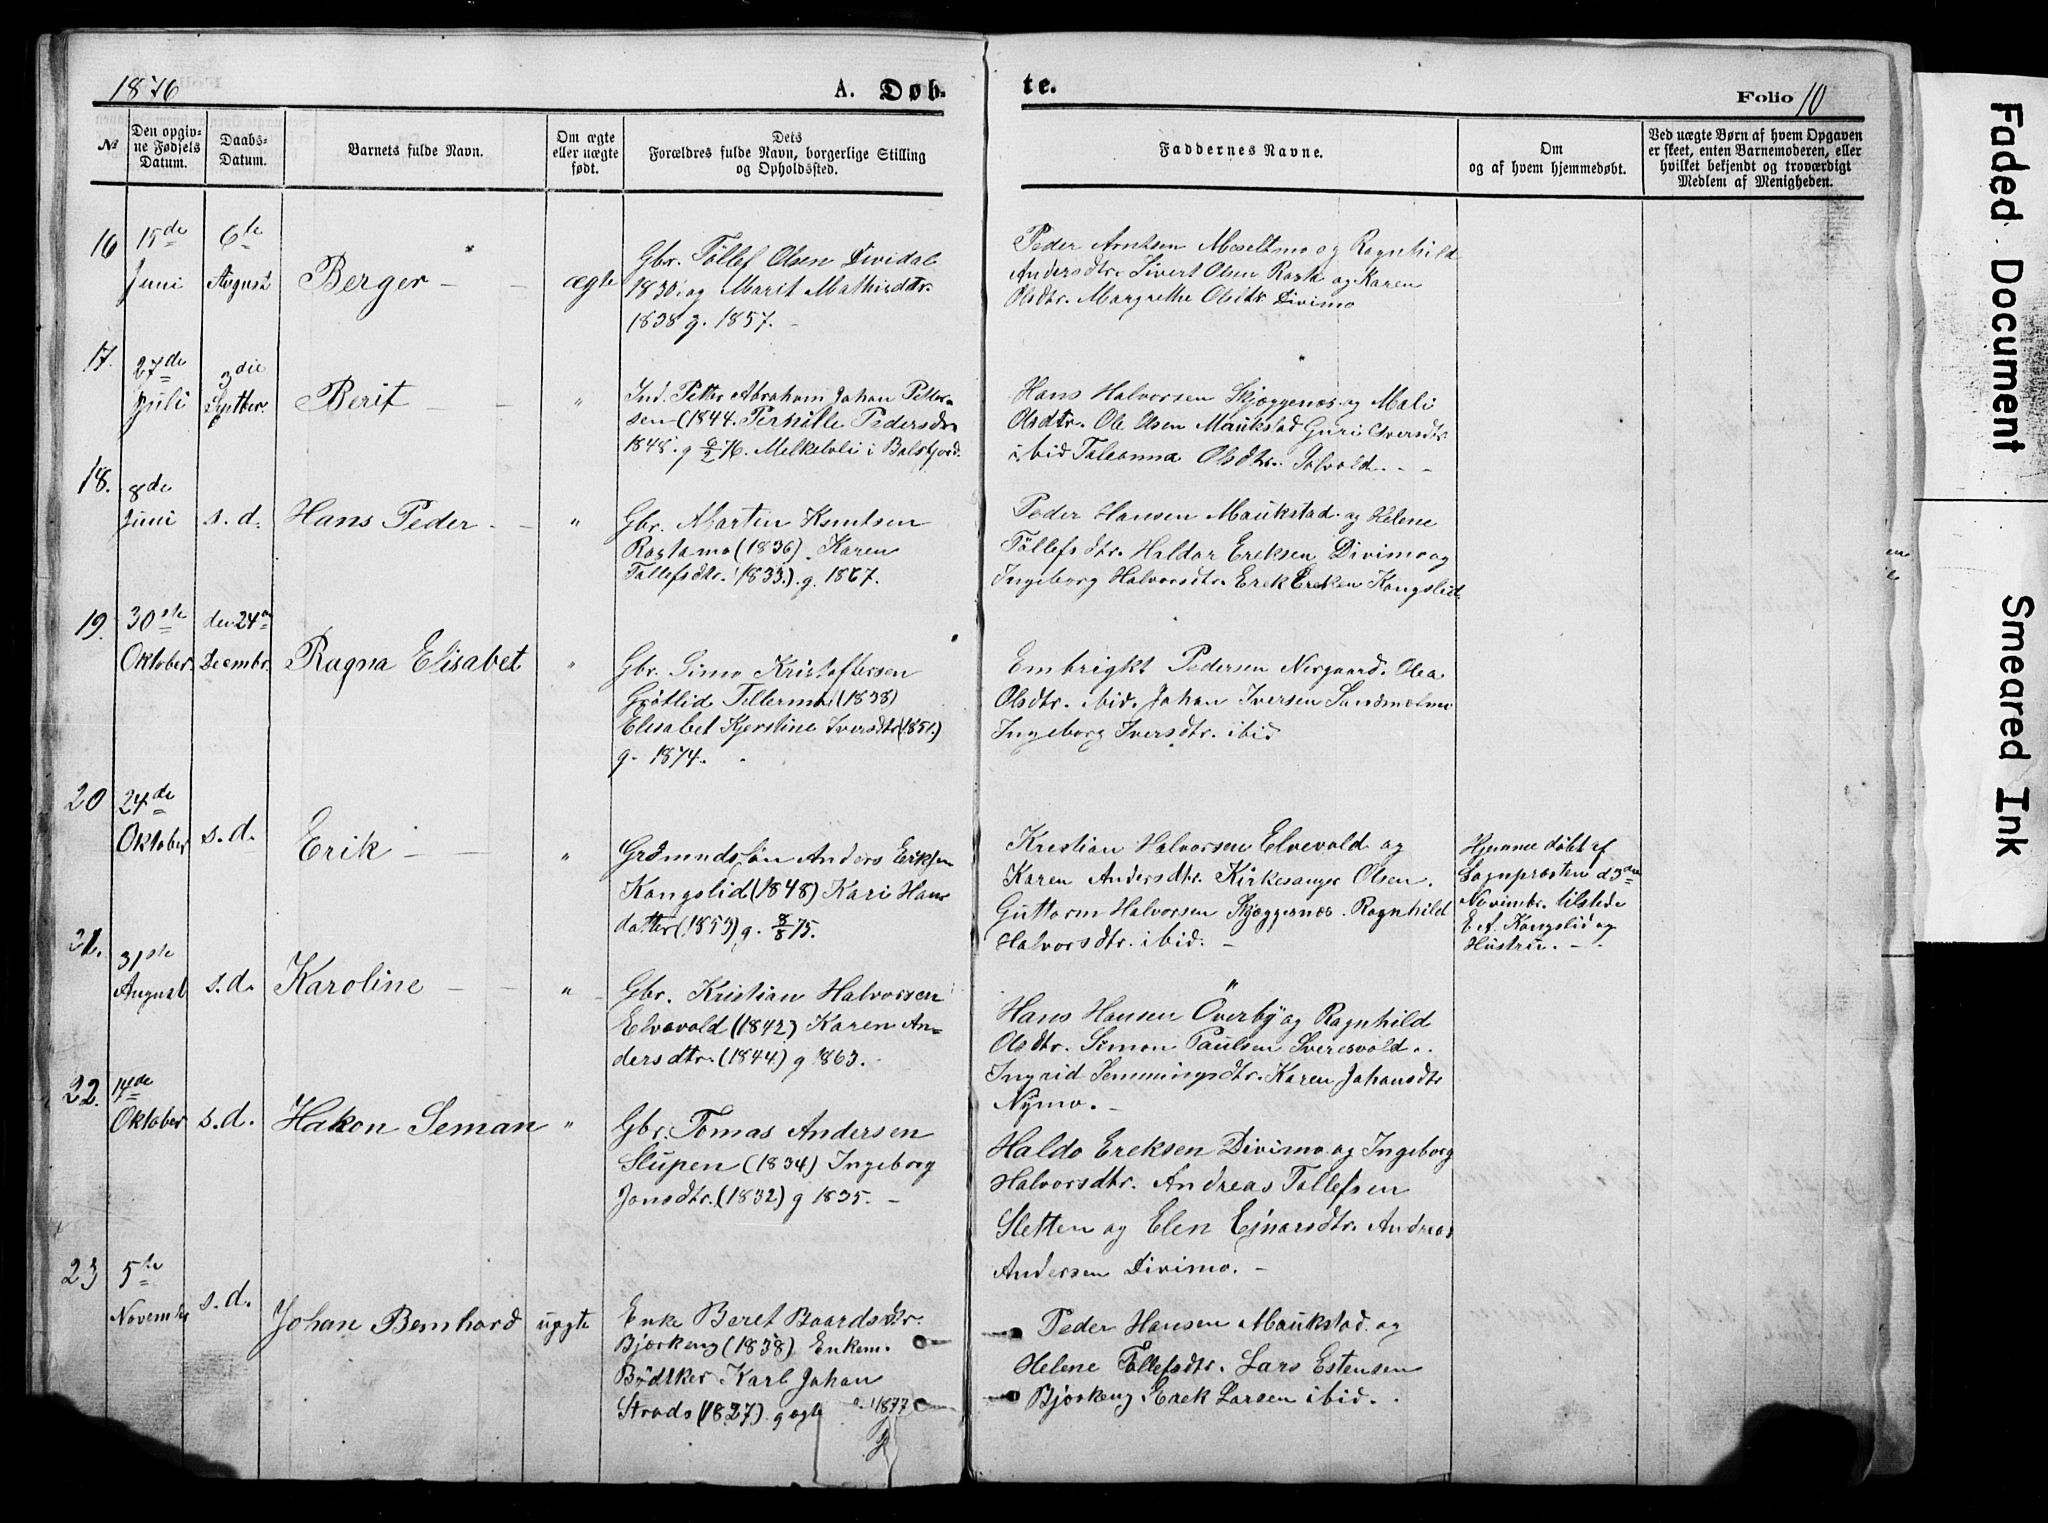 1876
A. Døb-
te.
Folio 10
№
Den opgiv-
ne Fødsels
Datum.
Daabs-
Datum.
Barnets fulde Navn.
Om ægte
eller uægte
født.
Dets
Forældres fulde Navn, borgerlige Stilling
og Opholdssted.
Faddernes Navne.
Om
og af hvem hjemmedøbt.
Ved uægte Børn af hvem Opgaven
er skeet, enten Barnemoderen, eller
hvilket bekjendt og troværdigt
Medlem af Menigheden.
16
15de
Juni
6te
August
Berger
ægte
Gbr. Tollef Olsen Dividal
1830 og Marit Mathisdtr.
1838 g. 1857.
Peder Arntsen Moseltmo og Ragnhild
Andersdtr. Sivert Olsen Rosta og Karen
Olsdtr. Margrethe Olsdtr Divimo
17.
27de
Juli
3die
Septbr.
Berit
"
Ind. Petter Abraham Johan Petter-
sen (1844. Pernille Pedersdtr
1848. g 6/2 76. Melkelvli i Balsfjord.
Hans Halvorsen Skjæggenes og Mali
Olsdtr. Ole Olsen Maukstad Guri Iversdtr
ibid Taleanna Olsdtr. Solvold.
18.
8de
Juni
s.d.
Hans Peder
"
Gbr. Morten Knutsen
Rostamo (1836). Karen
Tollefsdtr. 1833.) g. 1867.
Peder Hansen Maukstad og Helene
Tollefsdtr. Haldor Ereksen Divimo og
Ingeborg Halvorsdtr. Erek Ereksen Kongslid.
19.
30ste
Oktober
den 24de
Decembr.
Ragna Elisabet
"
Gbr. Simo Kristoffersen
Grøtlid Tellermo (1838)
Elisabet Kjerstine Iversdtr (1851.)
g. 1874.
Embrigkt Pedersen Nergaard. Olea
Olsdtr. ibid. Johan Iversen Sandmælmo
Ingeborg Iversdtr. ibid
20
24de
Oktober
s.d.
Erik
"
Grdmandssøn Anders Eriksen
Kongslid (1848) Kari Hans
datter (1853) g. 8/8 75.
Kristian Halvorsen Elvevold og
Karen Andersdtr. Kirkesanger Olsen.
Guttorm Halvorsen Skjæggenes. Ragnhild
Halvorsdtr. ibid.
Hjemmedøbt af
Sognpresten d 3die
Novembr. tilstede
E. A. Kongslid og
Hustru.
21.
31ste
August
s.d.
Karoline
"
Gbr. Kristian Halvorsen
Elvevold (1842) Karen An-
dersdtr. (1844) g 1863.
Hans Hansen Överby og Ragnhild
Olsdtr. Simon Paulsen Sveresvold.
Ingrid Semmingsdtr. Karen Johansdtr
Nymo.
22.
14de
Oktober
s.d.
Hakon Seman
"
Gbr. Tomas Andersen
Slupen (1834) Ingeborg
Jonsdtr. (1832) g 1835.
Haldo Ereksen Divimo og Ingeborg
Halvorsdtr. Andreas Tollefsen
Sletten og Elen Ejnarsdtr. Andreas
Andersen Divimo.
23
5te
Novembr
s.d.
Johan Bernhard
uægte
Enke Beret Baardsdtr.
Bjørkeng (1838) Enkem.
Bødtker Karl Johan
Strøds (1827) g ægte 1877
Peder Hansen Maukstad og
Helene Tollefsdtr. Lars Estensen
Bjørkeng. Erek Larsen ibid.
Faded Document
Smeared Ink